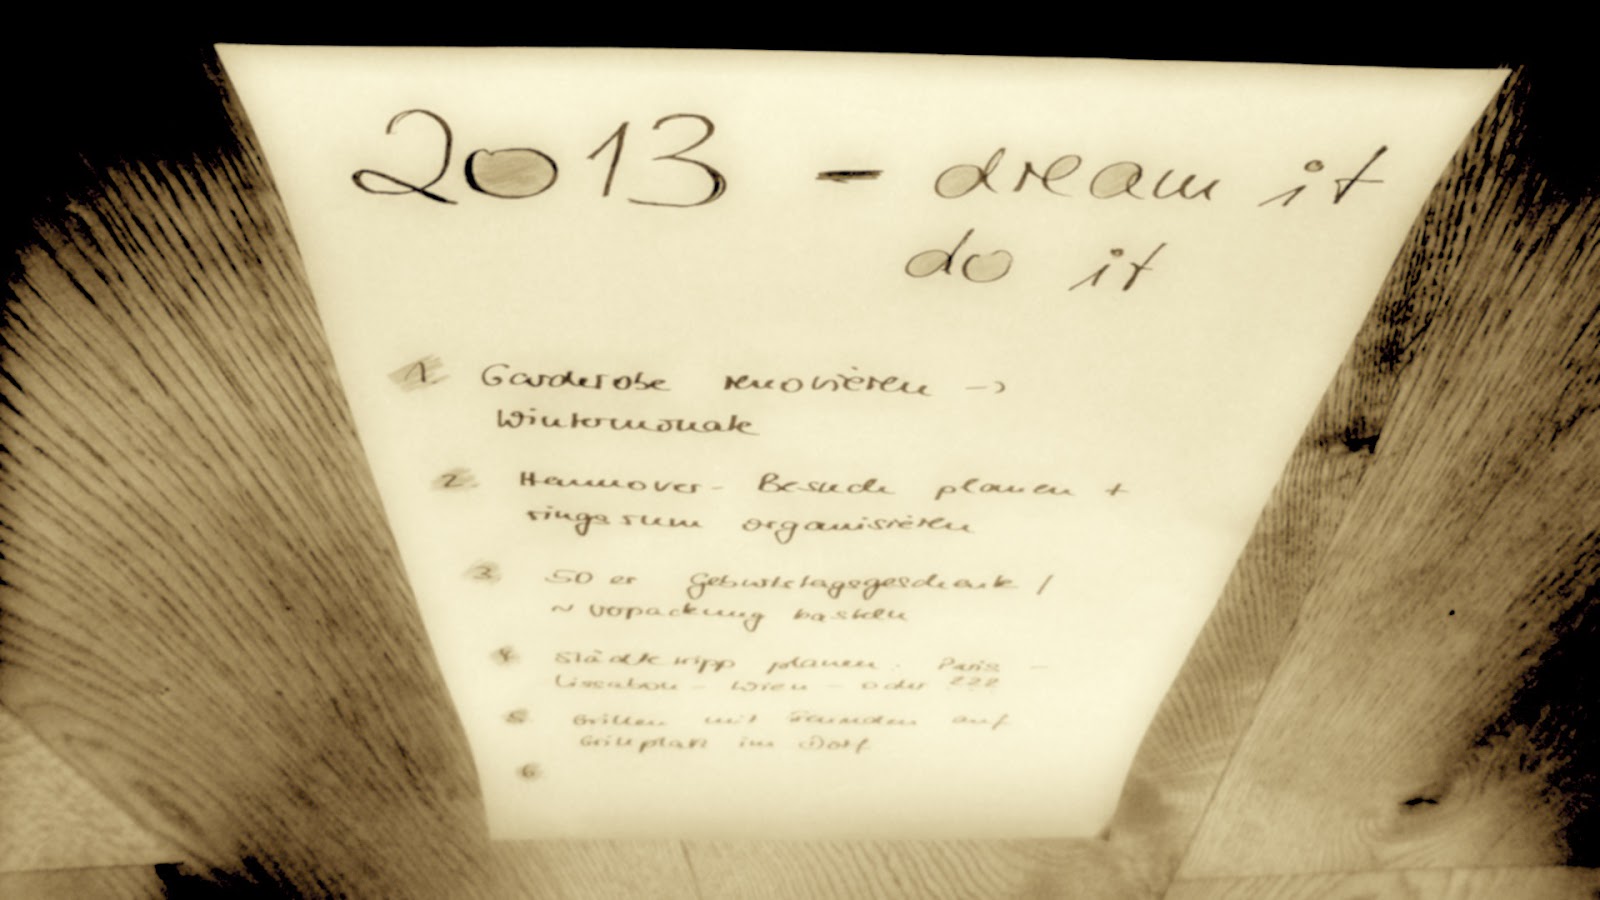 2013 - dream it
do it
1. Garderobe renovieren ->
Wintermonate
2. Hannover-Besuch planen +
ringsrum organisieren
3. 50er Geburtstagsgeschenk /
~ verpackung basteln
4. Städtetripp planen: Paris -
Lissabon - Wien - oder ???
5. Grillen mit Freunden auf
Grillplatz im Dorf
6